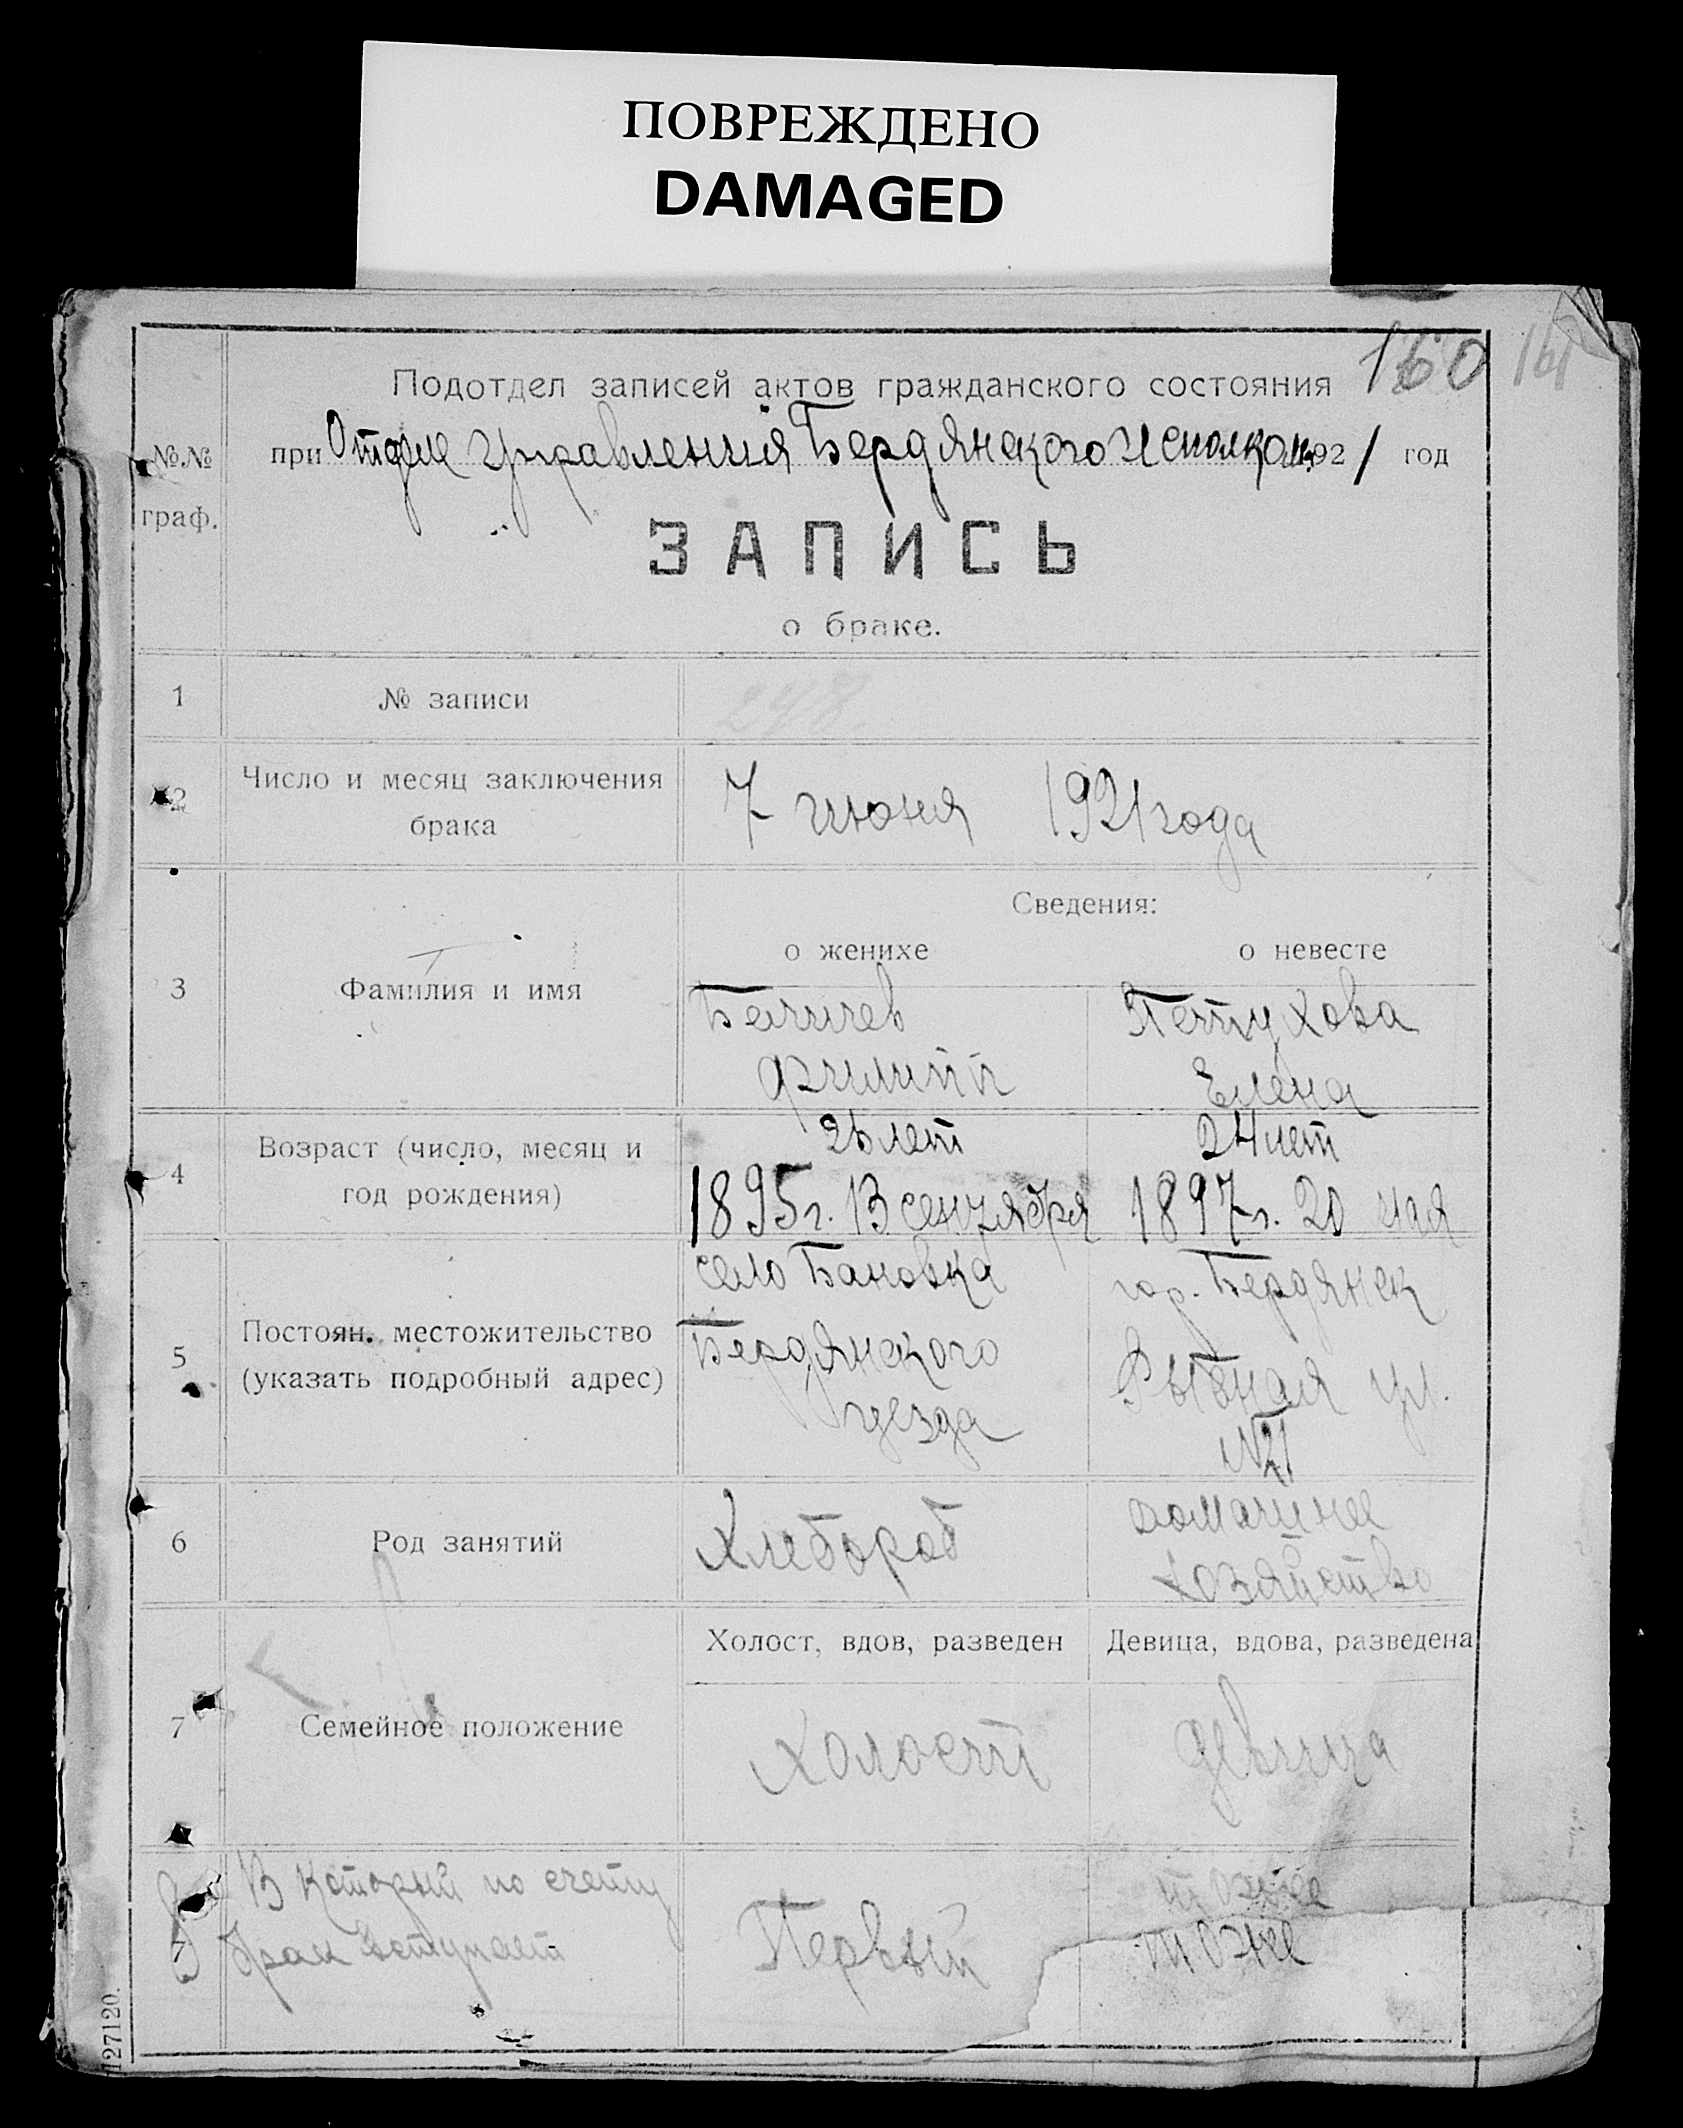 ПОВРЕЖДЕНО
DAMAGED
160 161
Подотдел записей актов гражданского состояния
при Отделе Управления Бердянского Исполкома 1921 год
№№
граф.
ЗАПИСЬ
о браке.
1 № записи 248
2 Число и месяц заключения
брака
7 июня 1921 года
Сведения:
о женихе о невесте
3 Фамилия и имя
Петухова
Филипп Елена
4 Возраст (число, месяц и
год рождения)
26 лет 24 лет
1895 г. 13 сентября 1897 г. 20 мая
5 Постоян. местожительство
(указать подробный адрес)
село Бановка гор. Бердянск
Бердянского Рыбная ул.
уезда №21
6 Род занятий
Хлебороб домашнее
хозяйство
Холост, вдов, разведен Девица, вдова, разведена
7 Семейное положение
холост девица
7 В который по счету
брак вступает
Первый тоже
тоже
127120.